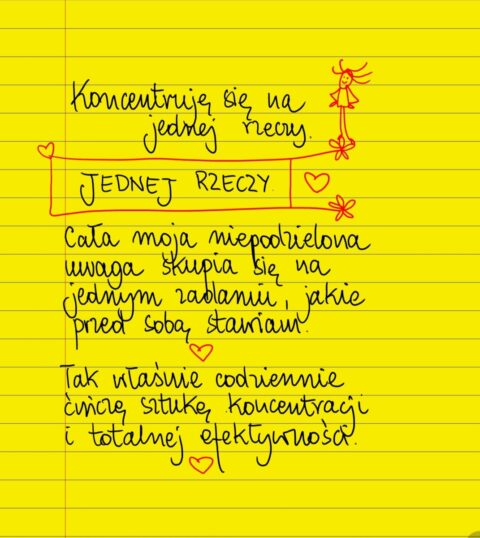 Koncentruję się na
jednej rzeczy.
JEDNEJ RZECZY.
Cała moja niepodzielona
uwaga skupia się na
jednym zadaniu, jakie
przed sobą stawiam.
Tak właśnie codziennie
ćwiczę sztukę koncentracji
i totalnej efektywności.